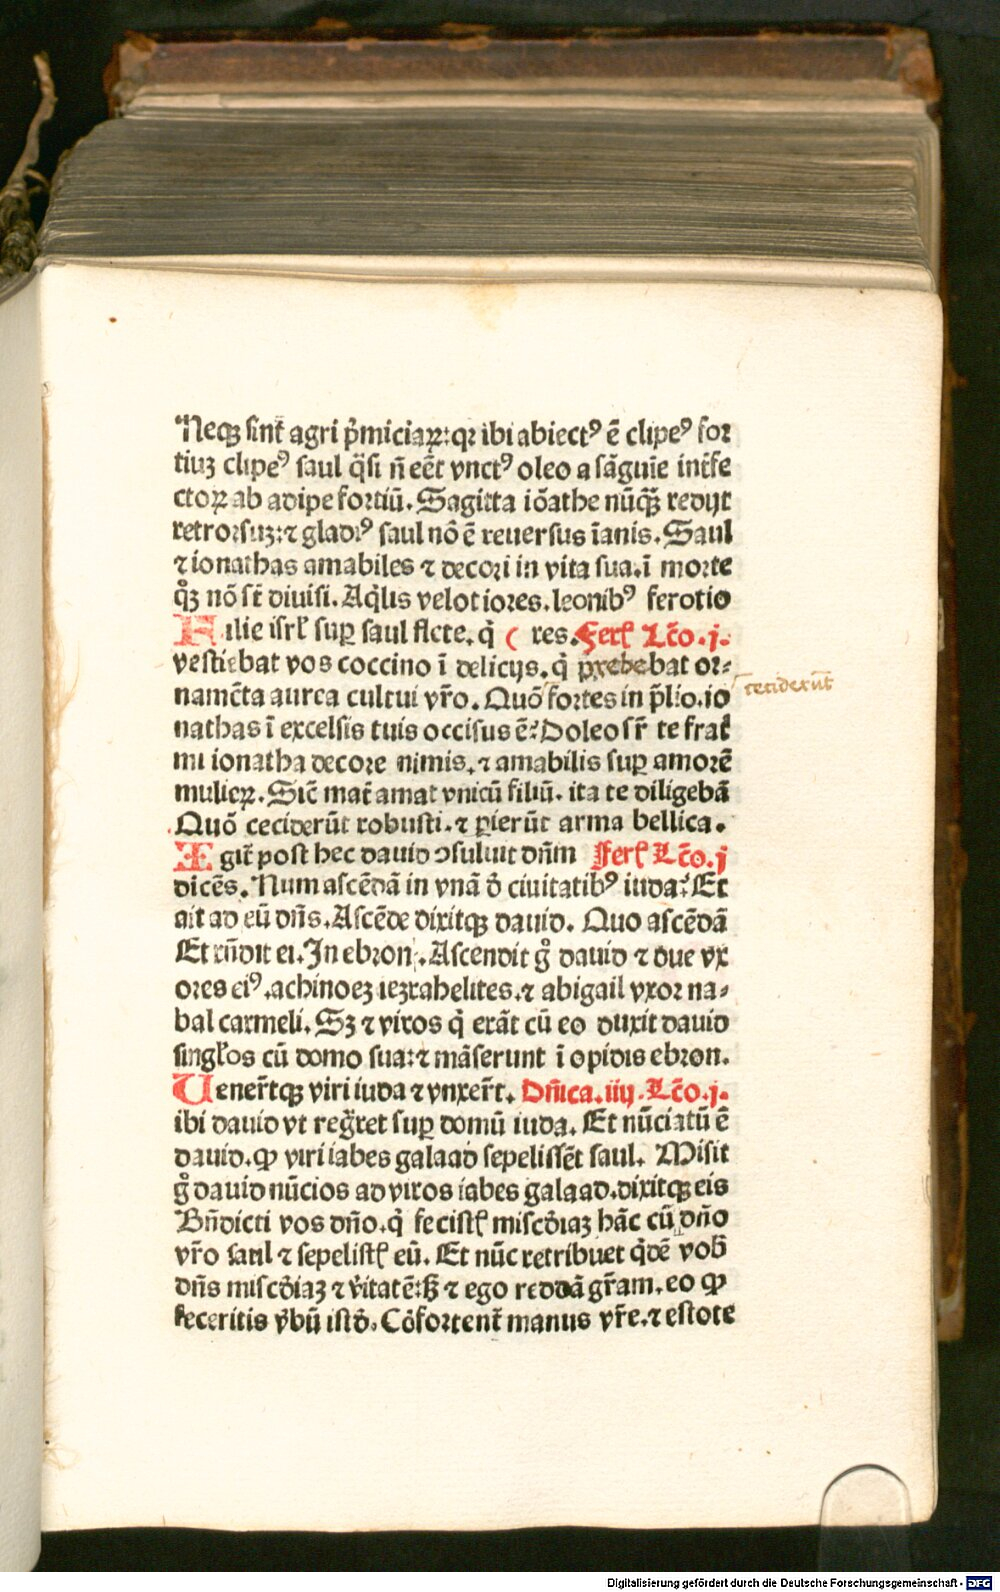 Neqꝫ sint̄ agri p̄miciaꝝ: qꝛ ibi abiectꝰ ē clipeꝰ for
tiuꝫ clipeꝰ saul q̄si n̄ eēt vnctꝰ oleo a sāguīe int̄fe
ctoꝝ ab adipe fortiū. Sagitta iōathe nūq̄ꝫ redijt
retrorsuꝫ: ⁊ gladiꝰ saul nō ē reuersus īanis. Saul
⁊ ionathas amabiles ⁊ decori in vita sua. ī morte
q̊ꝫ nō st̄ diuisi. Aq̇lis velotiores. leonibꝰ ferotio
Filie isrl̄ suꝑ saul flete. q̇ ( res. Ferl̄ Lc̄o. j.
vestiebat vos coccino ī delicijs. q̇ prebebat or⸗
namēta aurea cultui vr̄o. Quō fortes in p̄lio. io
ceciderūt
nathas ī excelsis tuis occisus ē? Doleo sr̄ te frat̄
mi ionatha decore nimis. ⁊ amabilis suꝑ amorē
mulieꝝ. Sic̄ mat̄ amat vnicū filiū. ita te diligebā
Quō ceciderūt robusti. ⁊ ꝑierūt arma bellica.
Egit̄ post hec dauid ꝯsuluit dn̄m Ferl̄ Lc̄o. j
dicēs. Num ascēdā in vnā d̄ ciuitatibꝰ iuda? Et
ait ad eū dn̄s. Ascēde dixitqꝫ dauid. Quo ascēdā
Et rn̄dit ei. In ebron. Ascendit g̊ dauid ⁊ due vx
ores eiꝰ. achinoeꝫ ieꝫrahelites. ⁊ abigail vxor na⸗
bal carmeli. Sꝫ ⁊ viros q̇ erāt cū eo duxit dauid
singl̄os cū domo sua: ⁊ māserunt ī opidis ebron.
Uener̄tqꝫ viri iuda ⁊ vnxer̄t. Dn̄ica. iiij. Lc̄o. j.
ibi dauid vt regr̄et suꝑ domū iuda. Et nūciatū ē
dauid. ꝙ viri iabes galaad sepelissēt saul. Misit
g̊ dauid nūcios ad viros iabes galaad. dixitqꝫ eis
Bn̄dicti vos dn̄o. q̇ fecistl̄ misc̄diaꝫ hāc cū dn̄o
vr̄o saul ⁊ sepelistl̄ eū. Et nūc retribuet q̇dē vob̄
dn̄s misc̄diaꝫ ⁊ v̄itatē: sꝫ ⁊ ego reddā gr̄am. eo ꝙ
feceritis v̄bū istd̄. Cōfortent̄ manus vr̄e. ⁊ estote
Digitalisierung gefördert durch die Deutsche Forschungsgemeinschaft - DFG